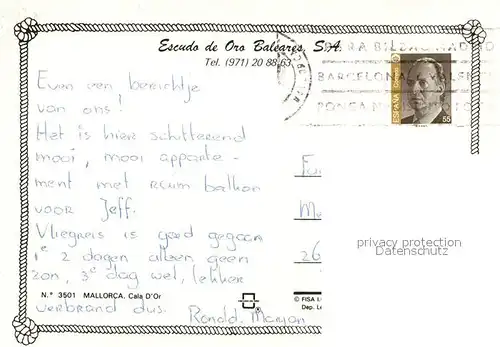 Escudo de Oro Baleares, S.A.
Tel. (971) 20 88 63
PARA BILBAO MADRID
BARCELONA VALENCI
PONGA
ESPAÑA
55
Even een berichtje
van ons!
Het is hier schitterend
mooi, mooi apparte-
ment met ruim balkon
voor Jeff.
Vliegreis is goed gegaan
1e 2 dagen alleen geen
zon, 3e dag wel, lekker
N.° 3501 MALLORCA. Cala D'Or
verbrand dus. Ronald. Marjan
Fa
Me
26
privacy protection
Datenschutz
© FISA I.
Dep. Le